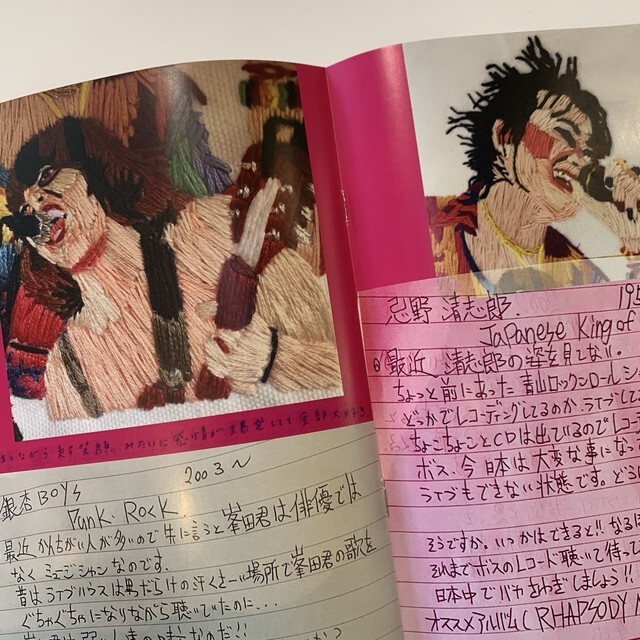 銀杏BOYs
2003〜
Punk. Rock
最近かんちがい人が多いので先に言うと峯田君は俳優では
なくミュージシャンなのです.
昔はライブハウスは男だらけの汗くさーい場所で峯田君の歌を
ぐちゃぐちゃになりながら聴いていたのに...
忌野 清志郎.
Japanese King of
最近 清志郎の姿を見てない.
ちょっと前にあった青山ロックンロールショ
どこかでレコーディングしてるのか.ライブして
ちょこちょことCDは出ているのでレコー
ボス.今日本は大変な事になっ
ライブもできない状態です.どう
そうですか.いつかはできると!!なるほ
それまでボスのレコード聴いて待って
日本中でバカさわぎしましょう!!
オススメアルバム(RHAPSODY N